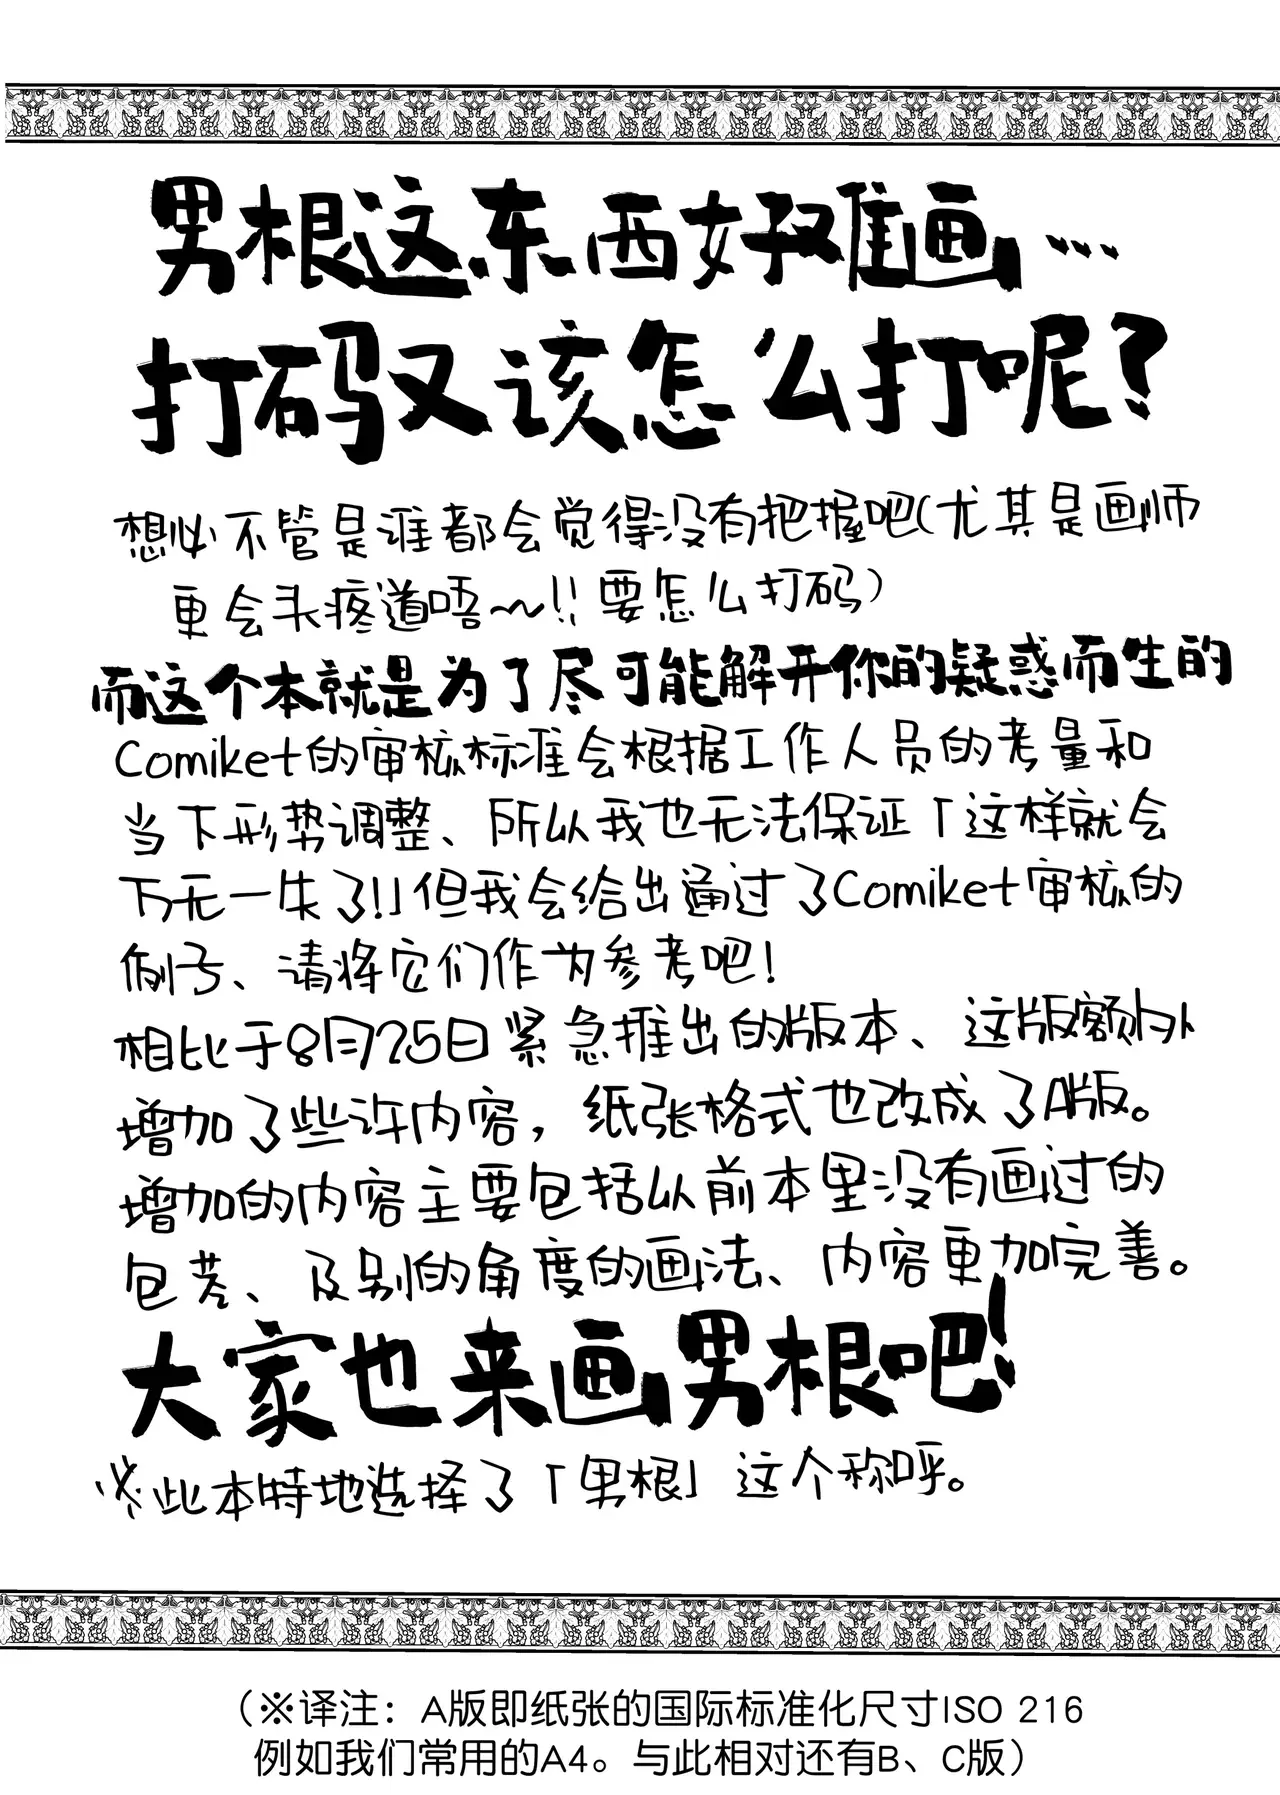 男根这东西好难画…
打码又该怎么打呢？
想必不管是谁都会觉得没有把握吧(尤其是画师
更会头疼道唔～!!要怎么打码)
而这个本就是为了尽可能解开你的疑惑而生的
Comiket的审核标准会根据工作人员的考量和
当下形势调整、所以我也无法保证「这样就会
万无一失了!!」但我会给出通过了Comiket审核的
例子、请将它们作为参考吧!
相比于8月25日紧急推出的版本、这版额外
增加了些许内容，纸张格式也改成了A版。
增加的内容主要包括以前本里没有画过的
包茎、及别的角度的画法、内容更加完善。
大家也来画男根吧!
※此本特地选择了「男根」这个称呼。
（※译注：A版即纸张的国际标准化尺寸ISO 216
例如我们常用的A4。与此相对还有B、C版）